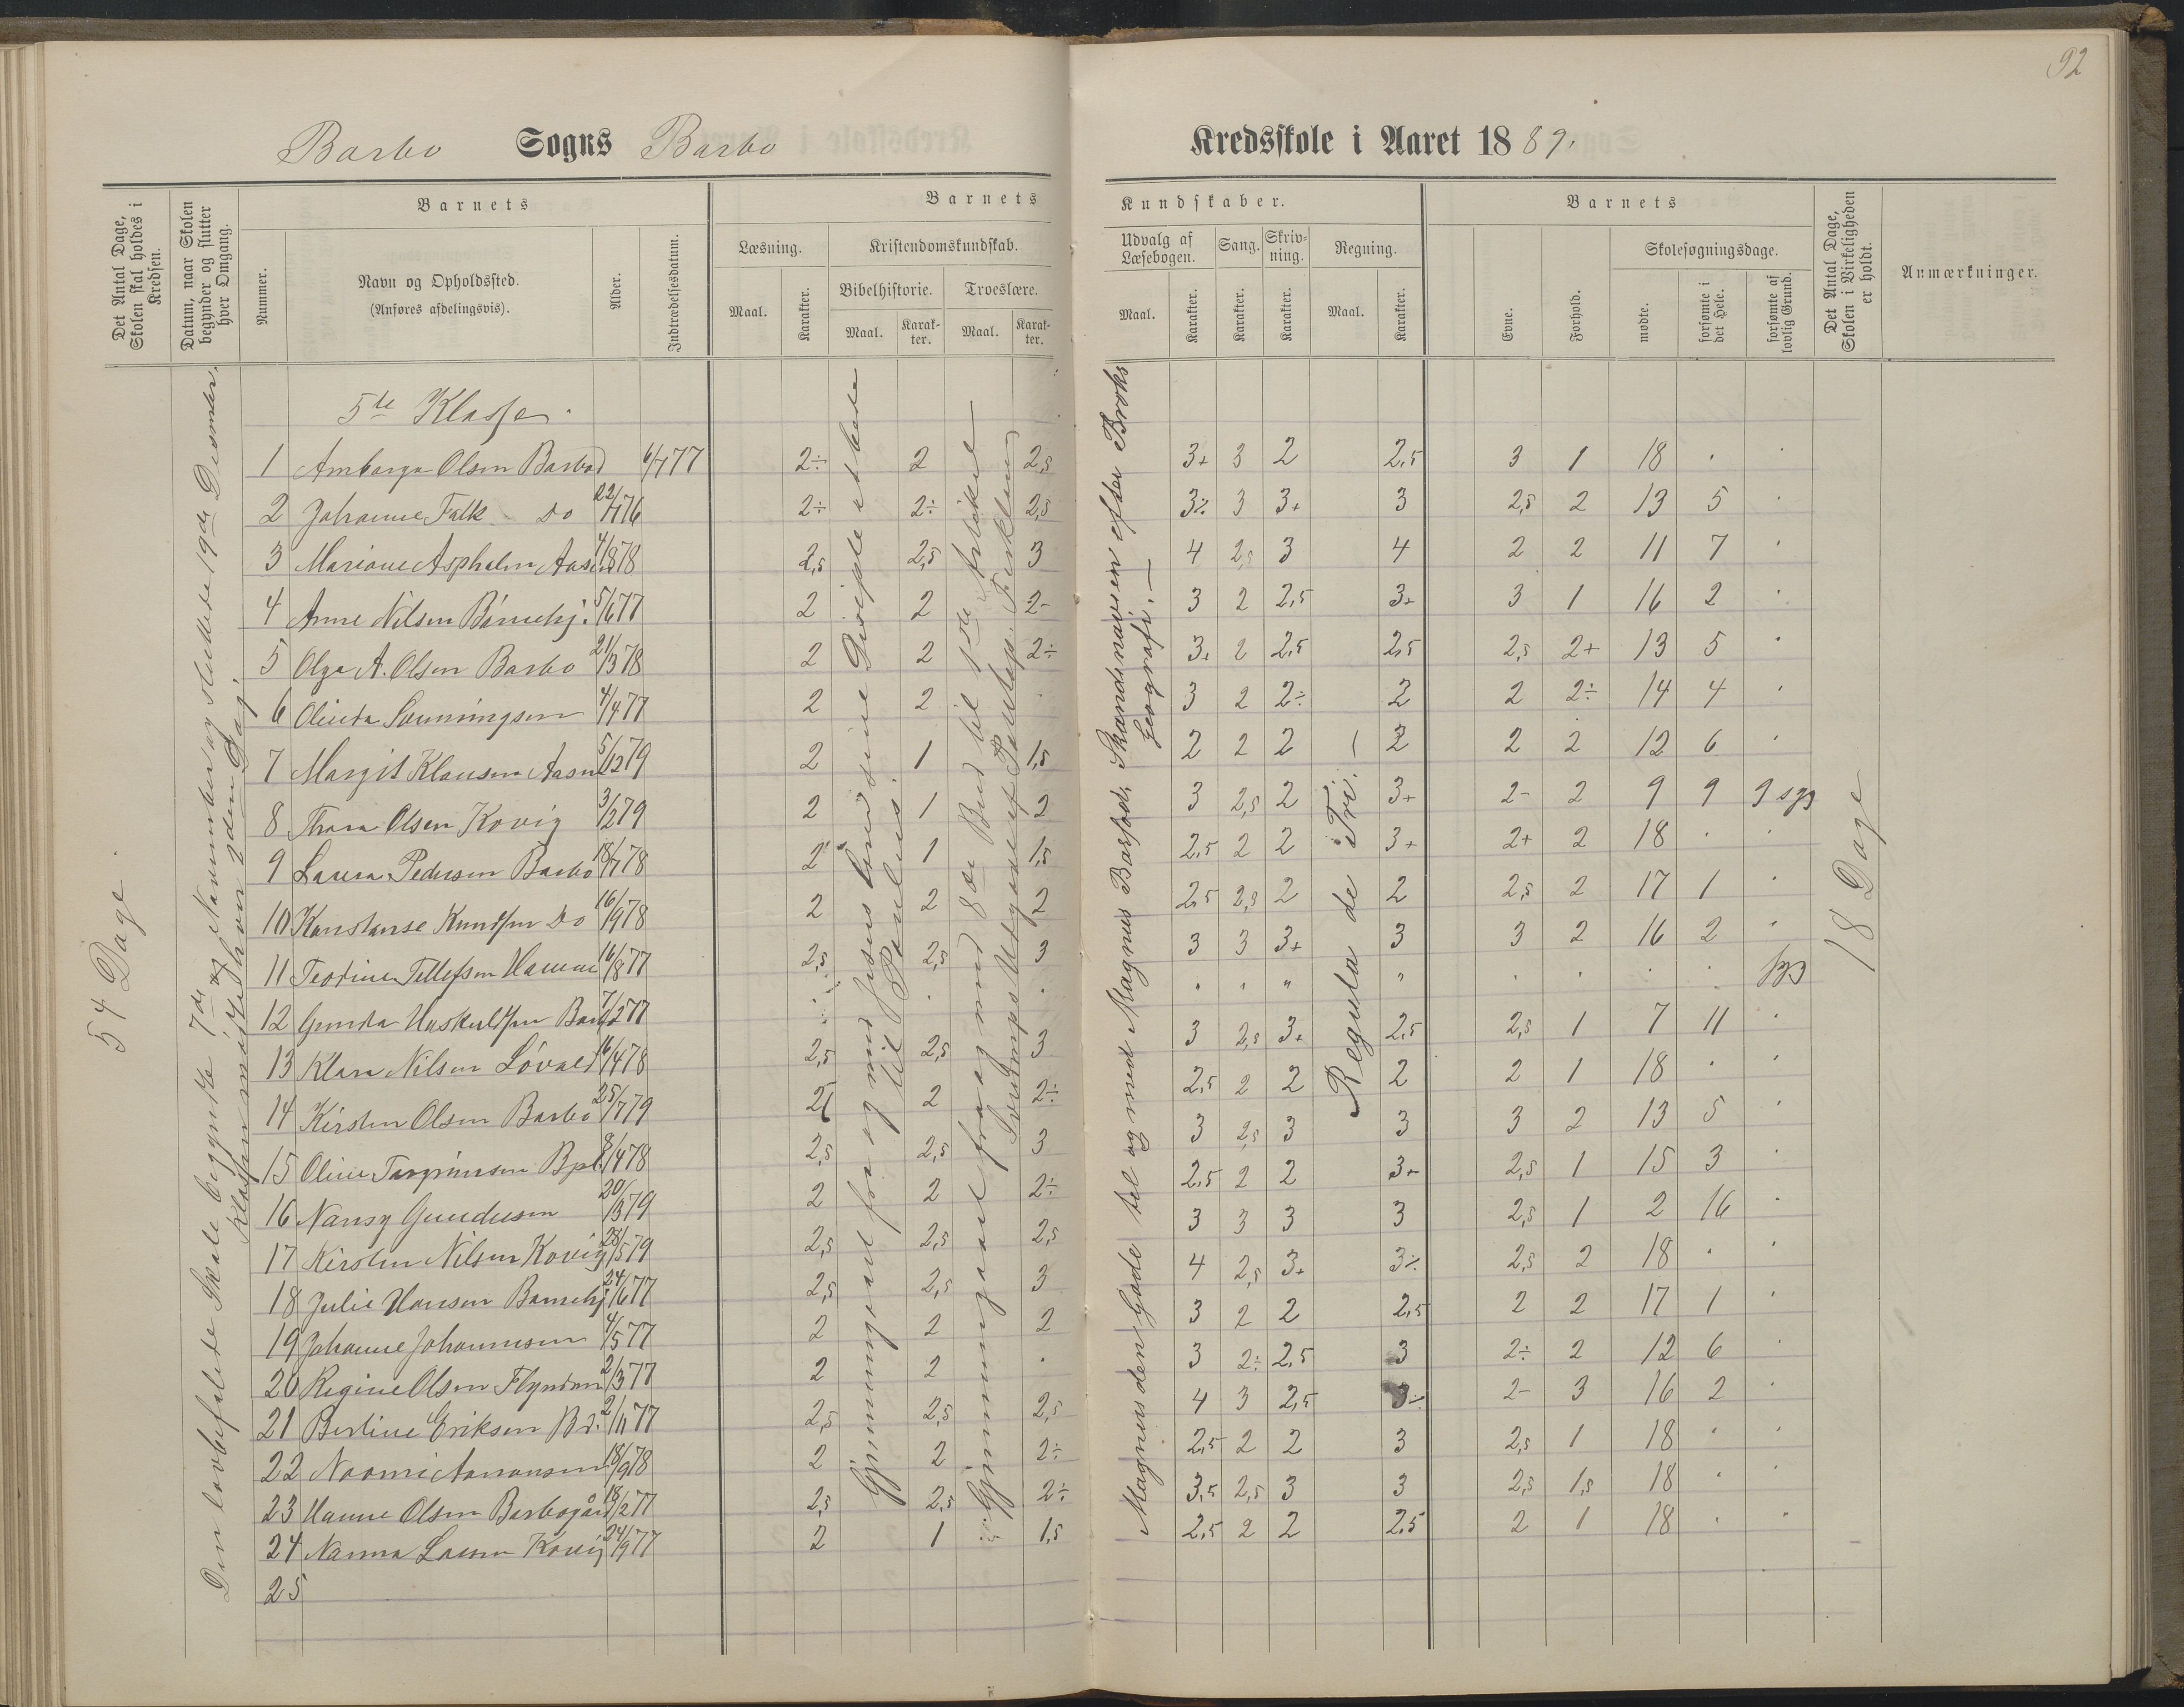 92
Barbo Sogns Barbo Kredsskole i Aaret 1889.
Det Antal Dage, Skolen skal holdes i Kredsen.
Datum, naar Skolen begynder og slutter hver Omgang.
Barnets
Nummer.
Navn og Opholdssted.
(Anføres afdelingsvis).
Alder.
Indtrædelsesdatum.
Barnets Kundskaber.
Læsning.
Maal. Karakter.
Kristendomskundskab.
Bibelhistorie. Troeslære.
Maal. Karakter. Maal. Karakter.
Udvalg af Læsebogen.
Maal. Karakter.
Sang. Karakter.
Skrivning. Karakter.
Regning.
Maal. Karakter.
Barnets
Evne. Forhold.
Skolesøgningsdage.
mødte. forsømte i det Hele. forsømte af lovlig Grund.
Det Antal Dage, Skolen i Virkeligheden er holdt.
Anmærkninger.
54 Dage
Den lovbefalede Skole begyndte 7de November og sluttede 19de December.
Klassen mødte hver 2den Dag.
Gjennemgaaet fra og med Jesus lærer sine Disciple at bede til Paulus.
Gjennemgaaet fra og med 8de Bud til 1ste Artikel
Sverdrups Udgave af Pontop. Forklaring
Magnus den Gode til og med Magnus Barfod, Skandinavien efter Broks Geografi. —
Regula de Tri. —
18 Dage
5te Klasse.
1 Amborga Olsen Barbo 6/7 77 2÷ 2 2,5 3+ 3 2 2,5 3 1 18 . .
2 Johanne Falk Do 22/7 76 2÷ 2÷ 2,5 3÷ 3 3+ 3 2,5 2 13 5 .
3 Marione Aspholm Aasen 4/8 78 2,5 2,5 3 4 2,5 3 4 2 2 11 7 .
4 Anne Nilsen Bømehj. 5/6 77 2 2 2- 3 2 2,5 3+ 3 1 16 2 .
5 Olga A. Olsen Barbo 21/3 78 2 2 2÷ 3+ 2 2,5 2,5 2,5 2+ 13 5 .
6 Olinda Sønningsen 4/4 77 2 2 . 3 2 2÷ 2 2 2÷ 14 4 .
7 Margit Klausen Aasen 5/12 79 2 1 1,5 2 2 2 2 2 2 12 6 .
8 Thora Olsen Kovig 3/2 79 2 1 2 3 2,5 2 3+ 2- 2 9 9 9 syg
9 Laura Pedersen Barbo 18/7 78 2 1 1,5 2,5 2 2 3+ 2+ 2 18 . .
10 Konstanse Knudsen Do 16/9 78 2 2 2 2,5 2,5 2 2 2,5 2 17 1 .
11 Teodine Tellefsen Hamme 16/8 77 2,5 2,5 3 3 3 3+ 3 3 2 16 2 .
12 Gunda Huskuldsen Barb 7/2 77 . . . " " " " . . . . syg
13 Klara Nilsen Løvald 16/4 78 2,5 2,5 3 3 2,5 3+ 2,5 2,5 1 7 11 .
14 Kirsten Olsen Barbo 25/7 79 2 2 2÷ 2,5 2 2 2 2 1 18 . .
15 Oline Targrimsen Bpl. 8/4 78 2,5 2,5 3 3 2,5 3 3 3 2 13 5 .
16 Nansy Gundersen 20/3 79 2 2 2÷ 2,5 2 2 3+ 2,5 1 15 3 .
17 Kirsten Nilsen Kovig 28/5 79 2,5 2,5 2,5 3 3 3 3 2,5 1 2 16 .
18 Julie Hansen Bamehj 24/6 77 2,5 2,5 3 4 2,5 3+ 3÷ 2,5 2 18 . .
19 Johanne Johannesen 4/5 77 2 2 2 3 2 2 2,5 2 2 17 1 .
20 Regine Olsen Flynderen 2/3 77 2 2 . 3 2÷ 2,5 3 2÷ 2 12 6 .
21 Bertine Eriksen Bd. 2/11 77 2,5 2,5 2,5 4 3 2,5 3÷ 2- 3 16 2 .
22 Noomi Aanonsen 18/9 78 2 2 2÷ 2,5 2 2 3 2,5 1 18 . .
23 Hanne Olsen Barbogård 18/2 77 2,5 2,5 2÷ 3,5 2,5 3 3 2,5 1,5 18 . .
24 Nanna Larsen Kovig 24/9 77 2 1 1,5 2,5 2 2 2,5 2 1 18 . .
25